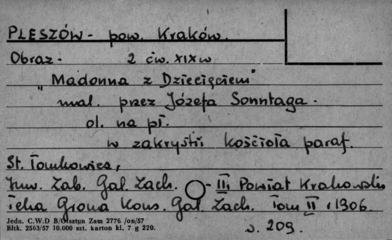 PLESZÓW - pow. Kraków.
Obraz - 2 ćw. XIX w
"Madonna z Dziecięciem"
mal. przez Józefa Sonntaga.
ol. na pł.
w zakrystii kościoła paraf.
St. Tomkowicz,
Inw. Zab. Gal. Zach. - III Powiat Krakowski
Teka Grona Kons. Gal. Zach. Tom II r 1906.
s. 209.
Jedn. C.W.D B/Olsztyn Zam 2776 /on/57
Blkt. 2503/57 10.000 szt. karton kl. 7 g 220.